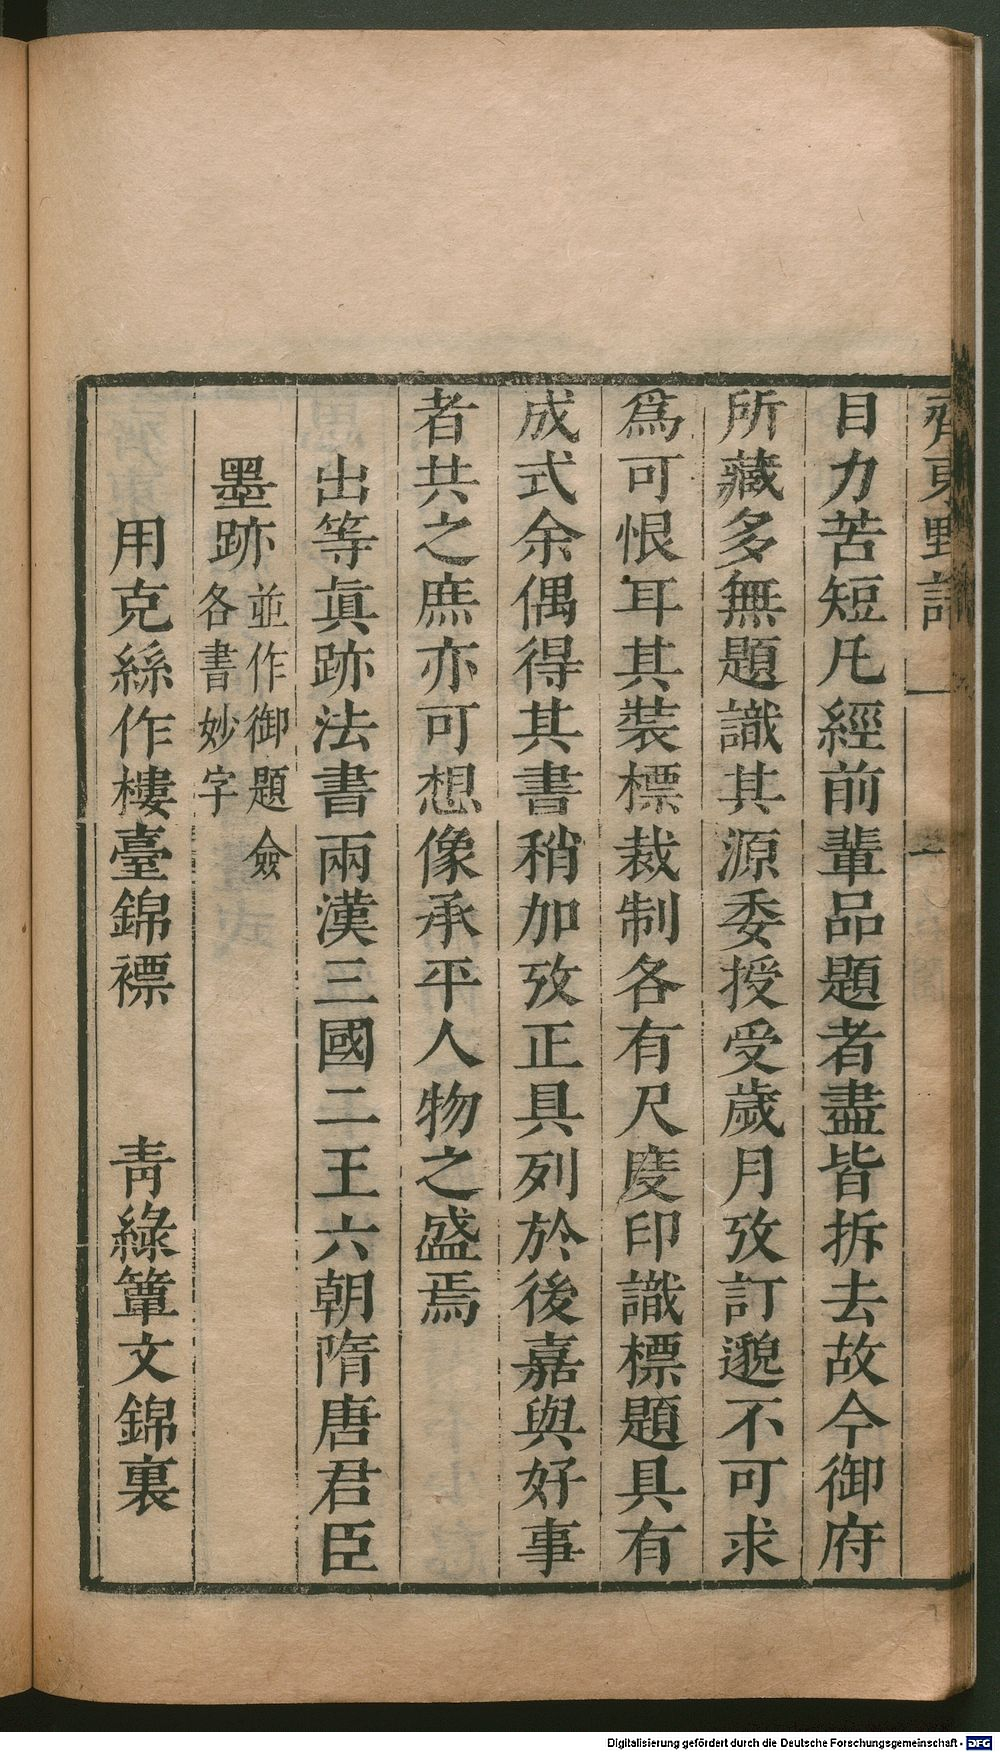 齊東野語
目力苦短凡經前輩品題者盡皆拆去故今御府
所藏多無題識其源委授受歲月攷訂邈不可求
爲可恨耳其裝標裁制各有尺度印識標題具有
成式余偶得其書稍加攷正具列於後嘉與好事
者共之庶亦可想像承平人物之盛焉
出等眞跡法書兩漢三國二王六朝隋唐君臣
墨跡並作御題僉
各書妙字
用克絲作樓臺錦褾 靑綠簟文錦裏
Digitalisierung gefördert durch die Deutsche Forschungsgemeinschaft - DFG